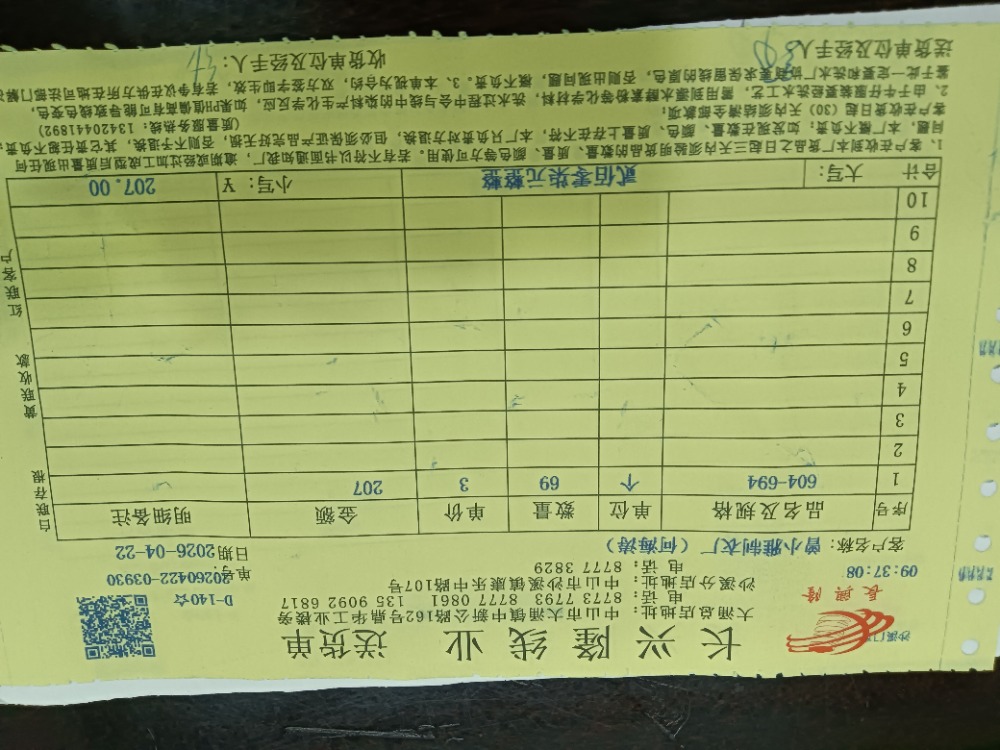 长兴隆线业 送货单
沙溪门
長興隆
大涌总店地址：中山市大涌镇中新公路162号鼎华工业楼旁
电话：8773 7793 8777 0861 135 9092 6817
沙溪分店地址：中山市沙溪镇康乐中路107号
电话：8777 3829
D-140☆
09:37:08
单号：20260422-03930
客户名称：曾小雅制衣厂（何海涛）
日期2026-04-22
序号 品名及规格 单位 数量 单价 金额 明细备注
1 604-694 个 69 3 207
2
3
4
5
6
7
8
9
10
合计 大写： 贰佰零柒元整整 小写：￥ 207.00
1、客户在收到本厂货品之日起三天内须验明货品的数量、质量、颜色等方可使用，若有不符以书面通知我厂，逾期或经过加工成型后质量出现任何
问题，本厂概不负责；如发现在数量、颜色、质量上存在不符，本厂只负责对方退换，但必须保证产品完好无损，否则不予退换，其它责任概不负责
客户在收货日起（30）天内须结清全部款项； （质量服务热线：13420441892）
2、由于牛仔服装要经洗水工艺，需用到漂水酵素粉等化学材料，洗水过程中会与线中的染料产生化学反应，如果PH值偏高有可能导致线色变色，
鉴于此一定要和洗水厂协调要求保留线的原色，否则出现问题，概不负责。3、本单视为合约，双方签字即生效，若有争议在供方所在地司法部门解决
送货单位及经手人
收货单位及经手人：
白联存根 黄联收款 红联客户